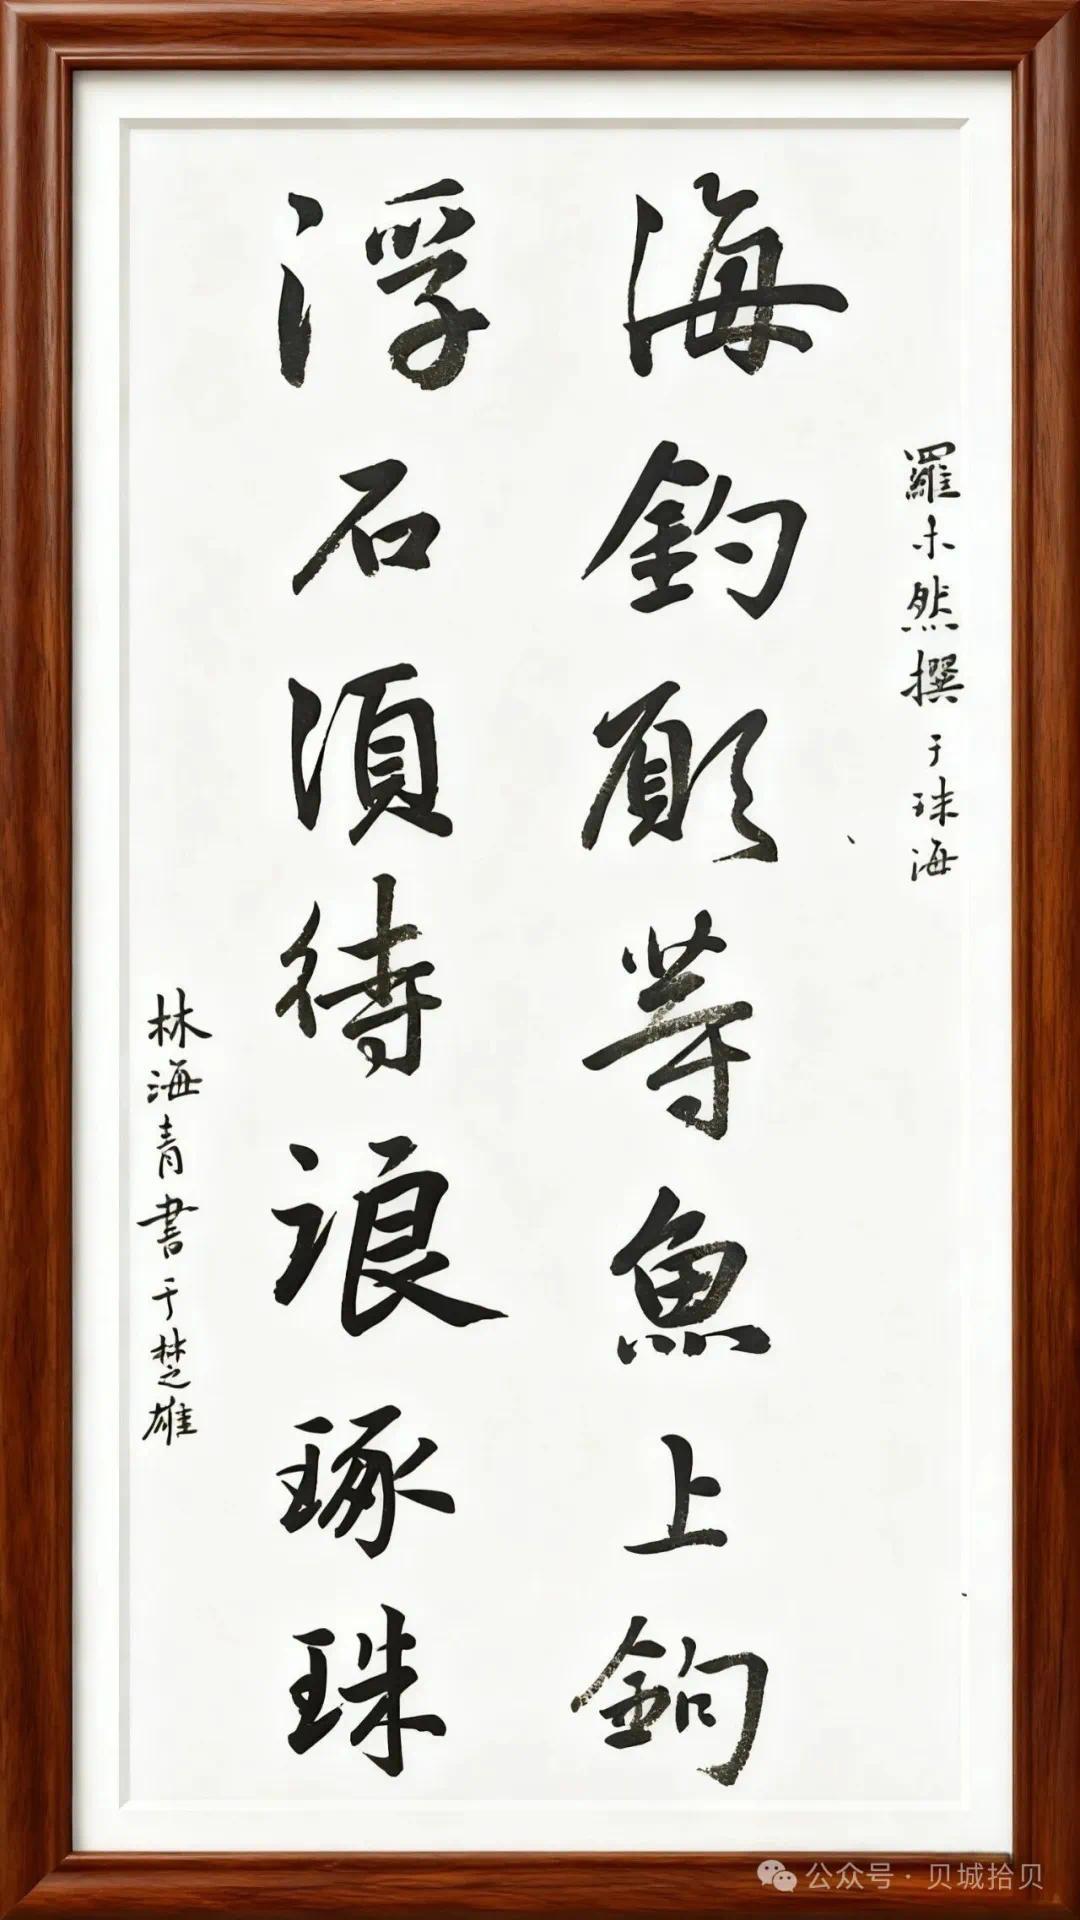 羅木然撰于珠海
海釣願等魚上鉤
浮石須待浪琢珠
林海青書于楚雄
公众号·贝城拾贝